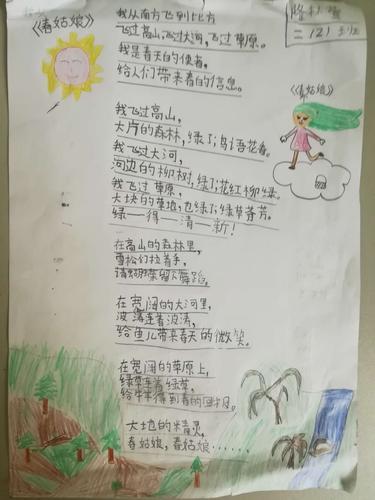 《春姑娘》
二(2)班
我从南方飞到北方
飞过高山,飞过大河,飞过草原。
我是春天的使者,
给人们带来春的信息。
《春姑娘》
我飞过高山,
大片的森林,绿了,鸟语花香。
我飞过大河,
河边的柳树,绿了,花红柳绿。
我飞过草原,
大块的草地,也绿了,绿草菁芳。
绿—得—清—新!
在高山的森林里,
雪松们拉着手,
请蝴蝶留下舞蹈。
在宽阔的大河里,
波涛连着波涛,
给鱼儿带来春天的微笑。
在宽阔的草原上,
绿草连着绿草,
给牛羊得到春的回报。
大地的精灵,
春姑娘,春姑娘……